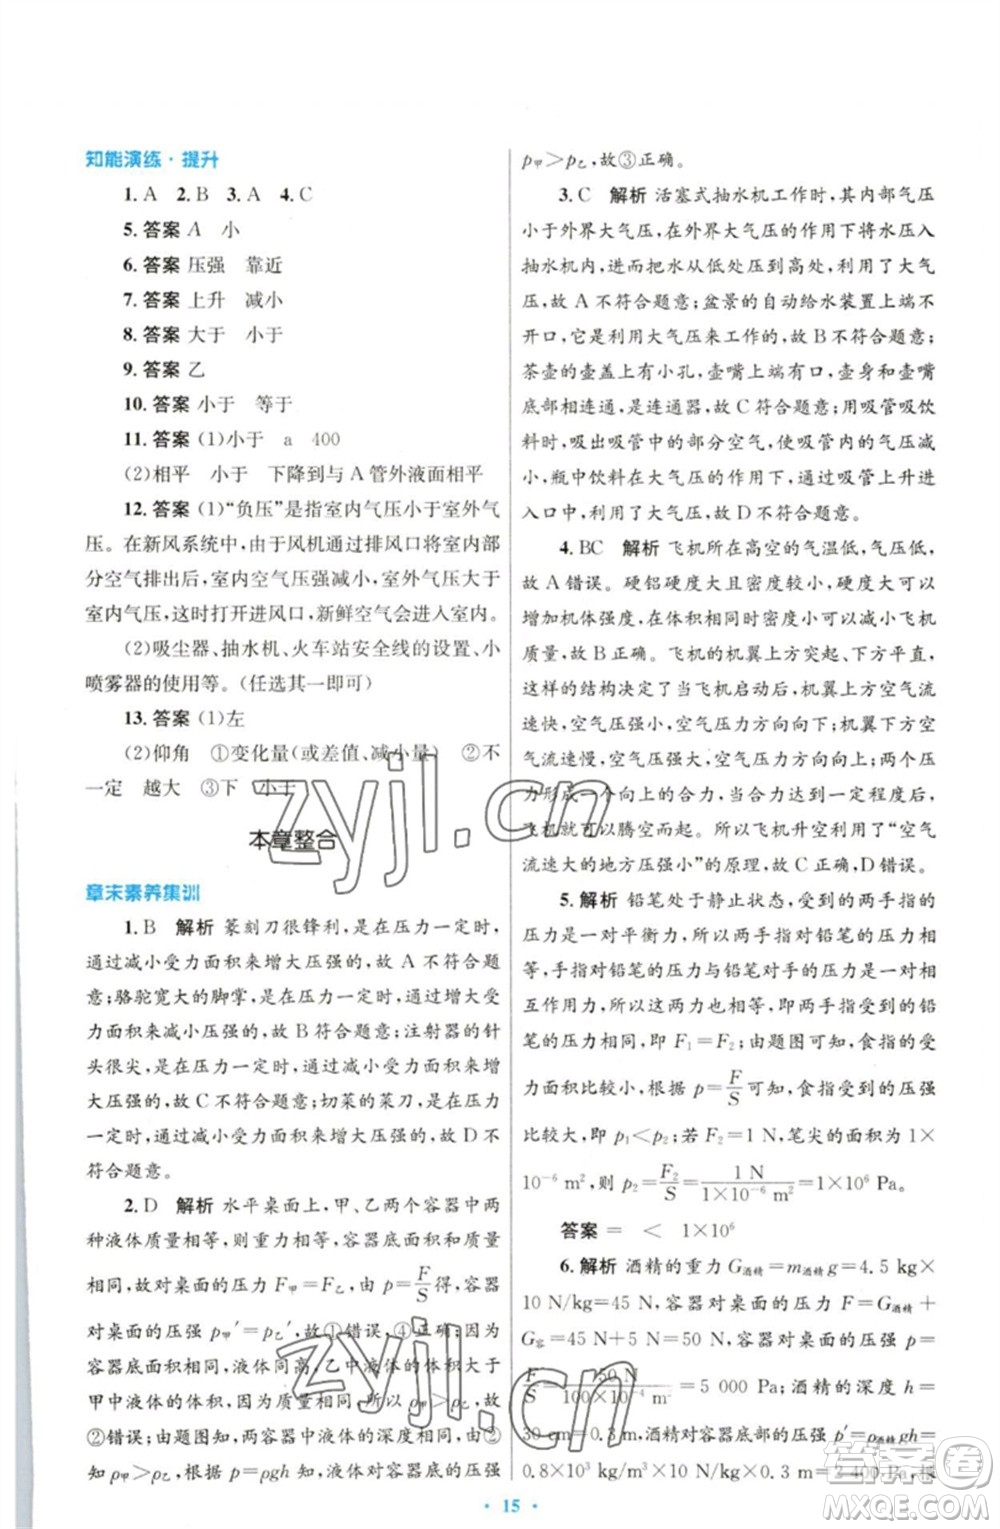 知能演练·提升
1. A  2. B  3. A  4. C
5. 答案 A 小
6. 答案 压强 靠近
7. 答案 上升 减小
8. 答案 大于 小于
9. 答案 乙
10. 答案 小于 等于
11. 答案 (1)小于 a 400
(2)相平 小于 下降到与 A 管外液面相平
12. 答案 (1)“负压”是指室内气压小于室外气
压。在新风系统中,由于风机通过排风口将室内部
分空气排出后,室内空气压强减小,室外气压大于
室内气压,这时打开进风口,新鲜空气会进入室内。
(2)吸尘器、抽水机、火车站安全线的设置、小
喷雾器的使用等。(任选其一即可)
13. 答案 (1)左
(2)仰角 ①变化量(或差值、减小量) ②不
一定 越大 ③下 小于
本章整合
章末素养集训
1. B 解析 篆刻刀很锋利,是在压力一定时,
通过减小受力面积来增大压强的,故 A 不符合题
意;骆驼宽大的脚掌,是在压力一定时,通过增大受
力面积来减小压强的,故 B 符合题意;注射器的针
头很尖,是在压力一定时,通过减小受力面积来增大
压强的,故 C 不符合题意;切菜的菜刀,是在压力一
定时,通过减小受力面积来增大压强的,故 D 不
符合题意。
2. D 解析 水平桌面上,甲、乙两个容器中两
种液体质量相等,则重力相等;容器质量和底面积
相同,故对桌面的压力 F甲=F乙,由 p=F/S 得,容器
对桌面的压强 p甲′=p乙′,故①错误,④正确;因为
容器底面积相同,液体同高,乙中液体的体积大于
甲中液体的体积,而液体质量相同,所以 ρ甲>ρ乙,故
②错误;由题图知,两容器中液体的深度相同,由②
知 ρ甲>ρ乙,根据 p=ρgh 知,液体对容器底的压强
p甲>p乙,故③正确。
3. C 解析 活塞式抽水机工作时,其内部气压
小于外界大气压,在外界大气压的作用下水压入
抽水机内,进而把水从低处压到高处,利用了大气
压,故 A 不符合题意;盆景的自动给水装置上端不
开口,它是利用大气压来工作的,故 B 不符合题意;
茶壶的壶盖上有小孔,壶嘴上端开口,壶身和壶嘴
底部相连通,是连通器,故 C 符合题意;用吸管吸饮
料时,吸出吸管中的部分空气,使吸管内的气压减
小,瓶中饮料在大气压的作用下,通过吸管上升进
入口中,利用了大气压,故 D 不符合题意。
4. BC 解析 飞机所在高空的气温低,气压低,
故 A 错误。硬铝硬度大且密度较小,硬度大可以
增加机体强度,在体积相同时密度小可以减小飞机
质量,故 B 正确。飞机的机翼上方突起、下方平直,
这样的结构决定了当飞机启动后,机翼上方空气流
速快,空气压强小,空气压力方向向下;机翼下方空
气流速慢,空气压强大,空气压力方向向上;两个压
力形成一个向上的合力,当合力大到一定程度后,
飞机就可以腾空而起。所以飞机升空利用了“空气
流速大的地方压强小”的原理,故 C 正确,D 错误。
5. 解析 铅笔处于静止状态,受到的两手指的
压力是一对平衡力,所以两手指对铅笔的压力相
等,手指对铅笔的压力与铅笔对手的压力是一对相
互作用力,所以这两力也相等,即两手指受到的铅
笔的压力相同,即 F₁=F₂;由题图可知,食指的受
力面积比较小,根据 p=F/S 可知,食指受到的压强
比较大,即 p₁<p₂;若 F₂=1 N,笔尖的面积为 1×
10⁻⁶ m²,则 p₂=F₂/S=1 N/(1×10⁻⁶ m²)=1×10⁶ Pa。
答案 = < 1×10⁶
6. 解析 酒精的重力 G酒精=m酒精g=4.5 kg×
10 N/kg=45 N,容器对桌面的压力 F=G酒精+
G容=45 N+5 N=50 N,容器对桌面的压强 p=
F/S=50 N/(100×10⁻⁴ m²)=5 000 Pa;酒精的深度 h=
30 cm=0.3 m,酒精对容器底部的压强 p′=ρ酒精gh=
0.8×10³ kg/m³×10 N/kg×0.3 m=2 400 Pa,依
· 15 ·
zyjl.cn
zyjl.cn
答案圈
MXQE.COM